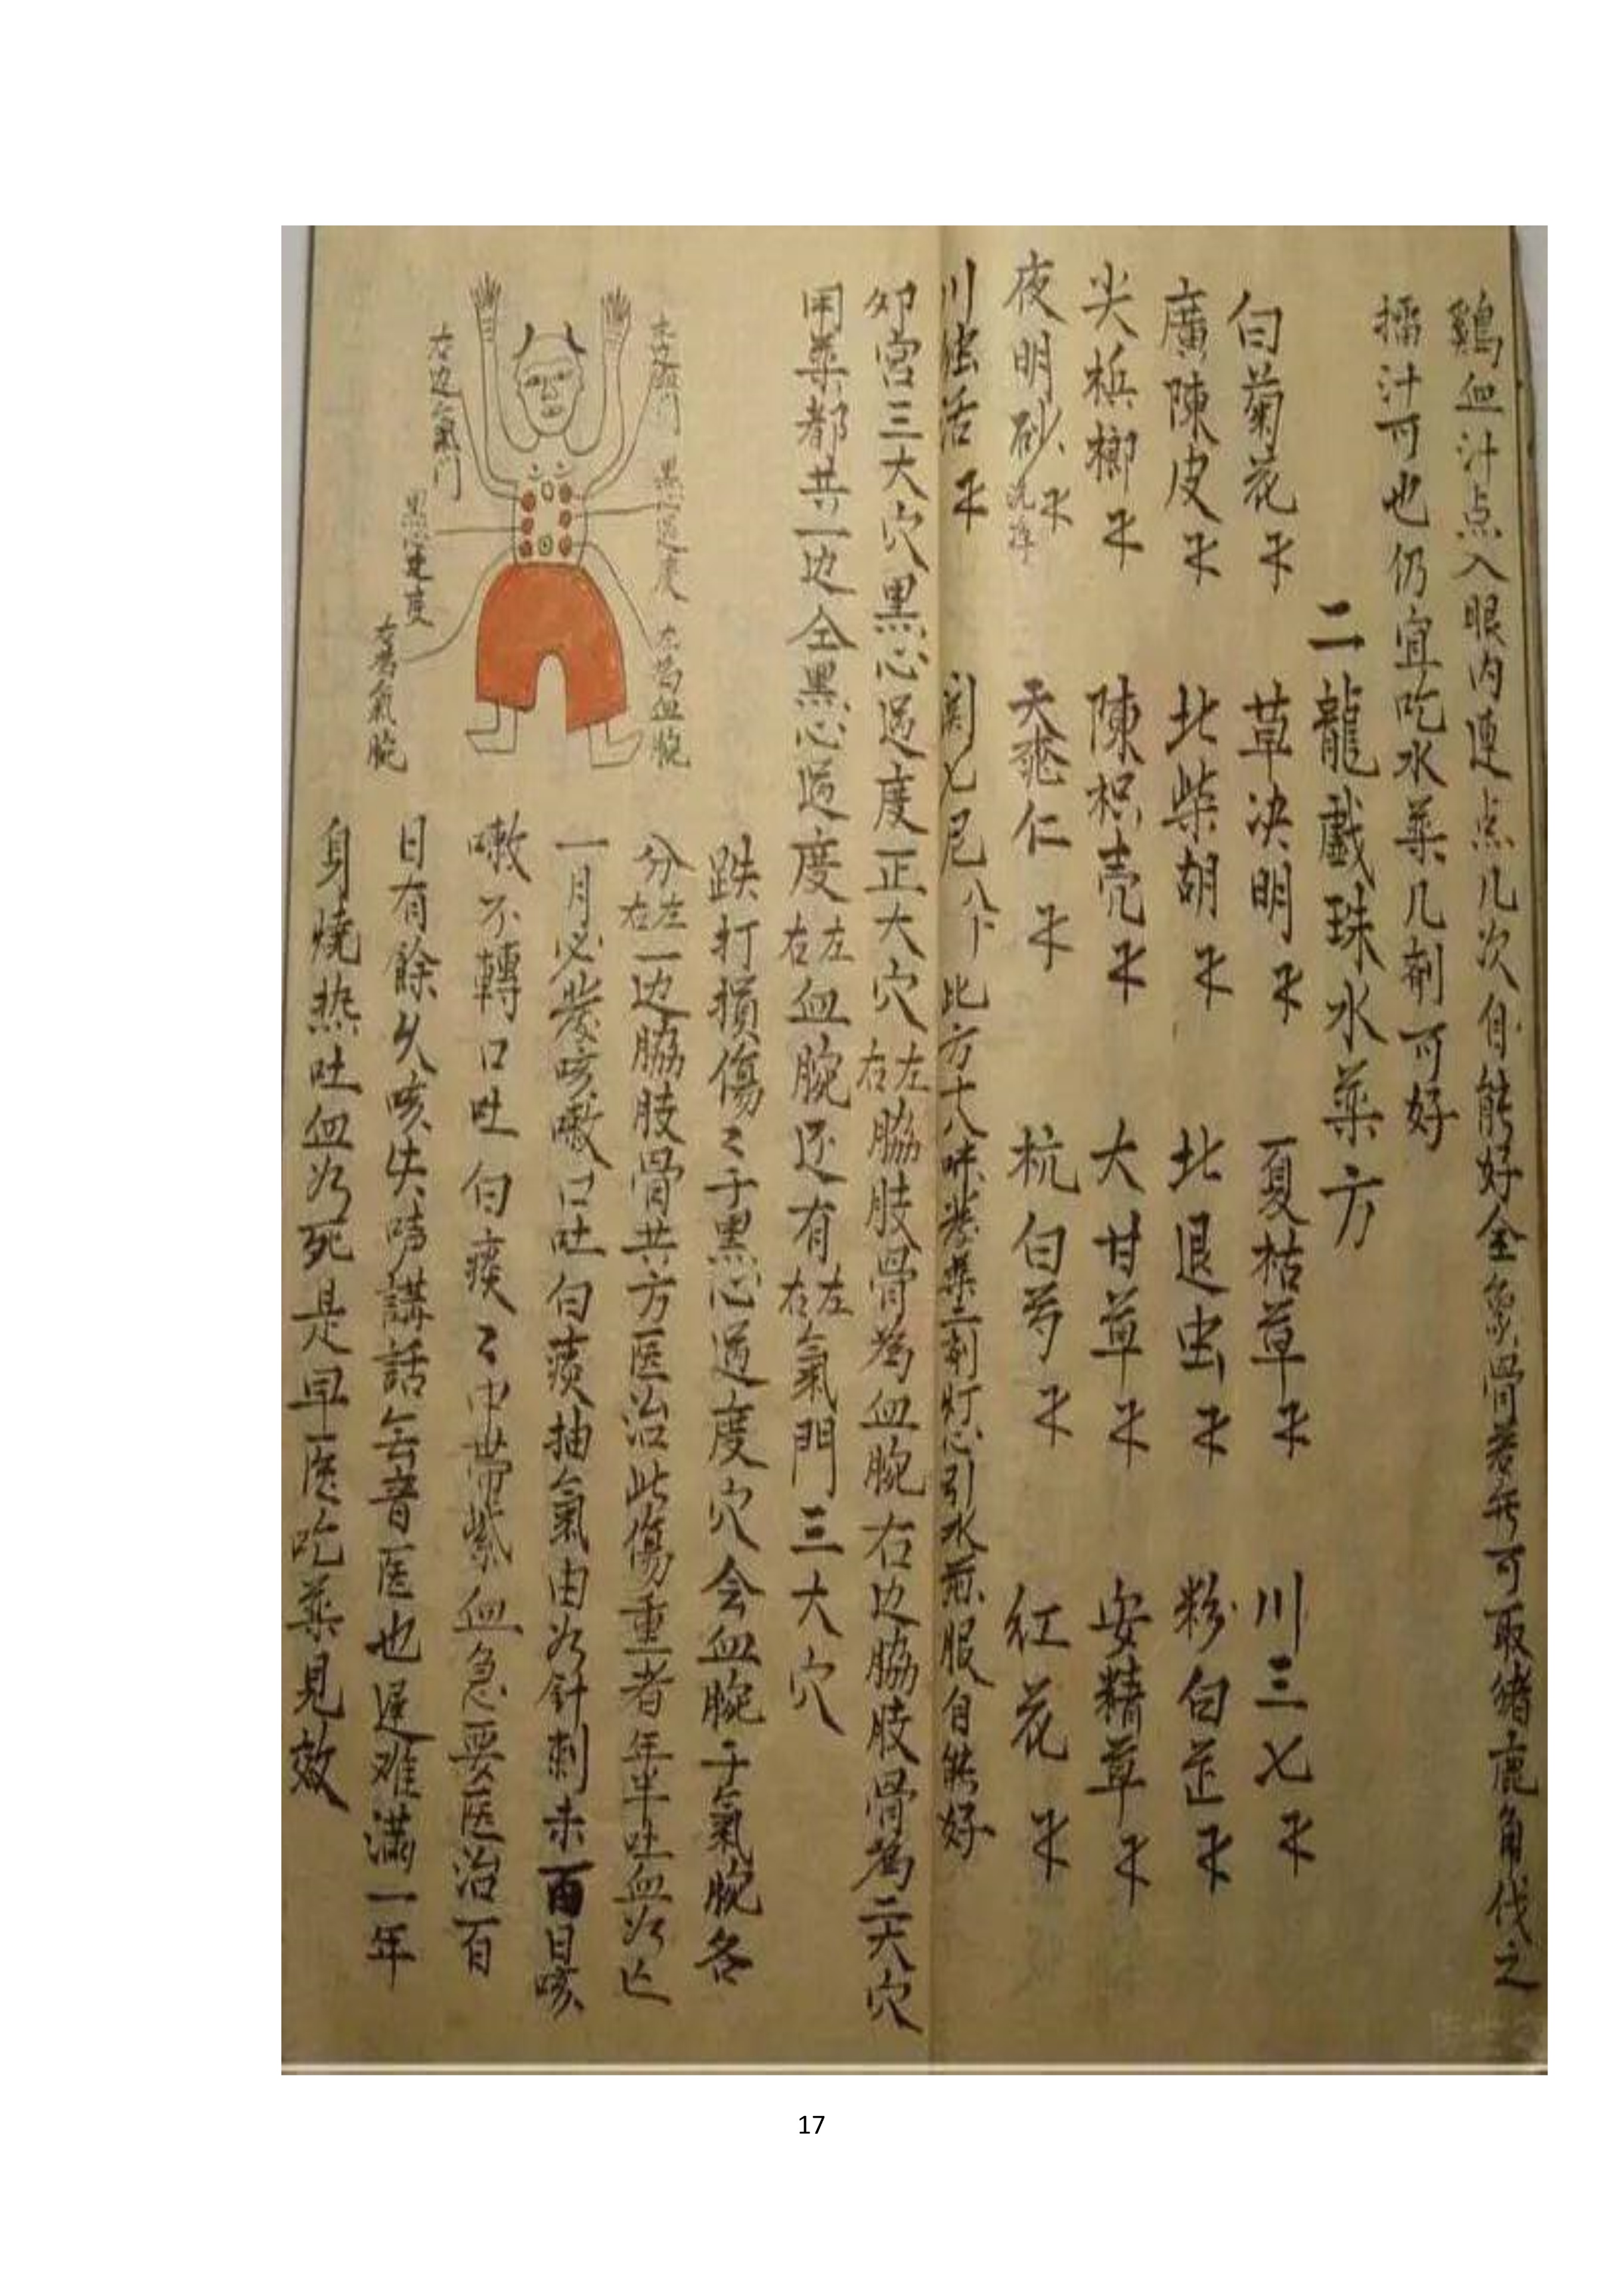 鷄血汁点入眼内連点几次自能好全象骨若无可取猪鹿角伐之
擂汁可也仍宜吃水菓几剤可好
二龍戲珠水菓方
白菊花 草决明 夏枯草 川三七
廣陳皮 北柴胡 北退虫 粉白芷
尖梹榔 陳枳壳 大甘草 安精草
夜明砂 洗淨 天 仁 杭白芍 紅花
川 活 七 此方十八味 菓二剤灯心引水煎服自能好
卯宫三大穴黑心過度正大穴左右脇肢骨為血腕右边脇肢骨為二大穴
用菓都共一边全黑心過度左右血腕还有左右氣門三大穴
跌打損傷々于黑心過度穴会血腕于氣腕各
分左右一边脇肢骨共方医治此傷重者年半吐血 亡
一月必發咳嗽口吐白痰抽氣由 針刺未百日咳
嗽不轉口吐白痰々中带紫血急要医治百
日有餘久咳失 講話 音医也遲难滿一年
身燒热吐血 死是早医吃菓見效
氣門
黑心過度
左為血腕
右边氣門
黑心過度
右為氣腕
17